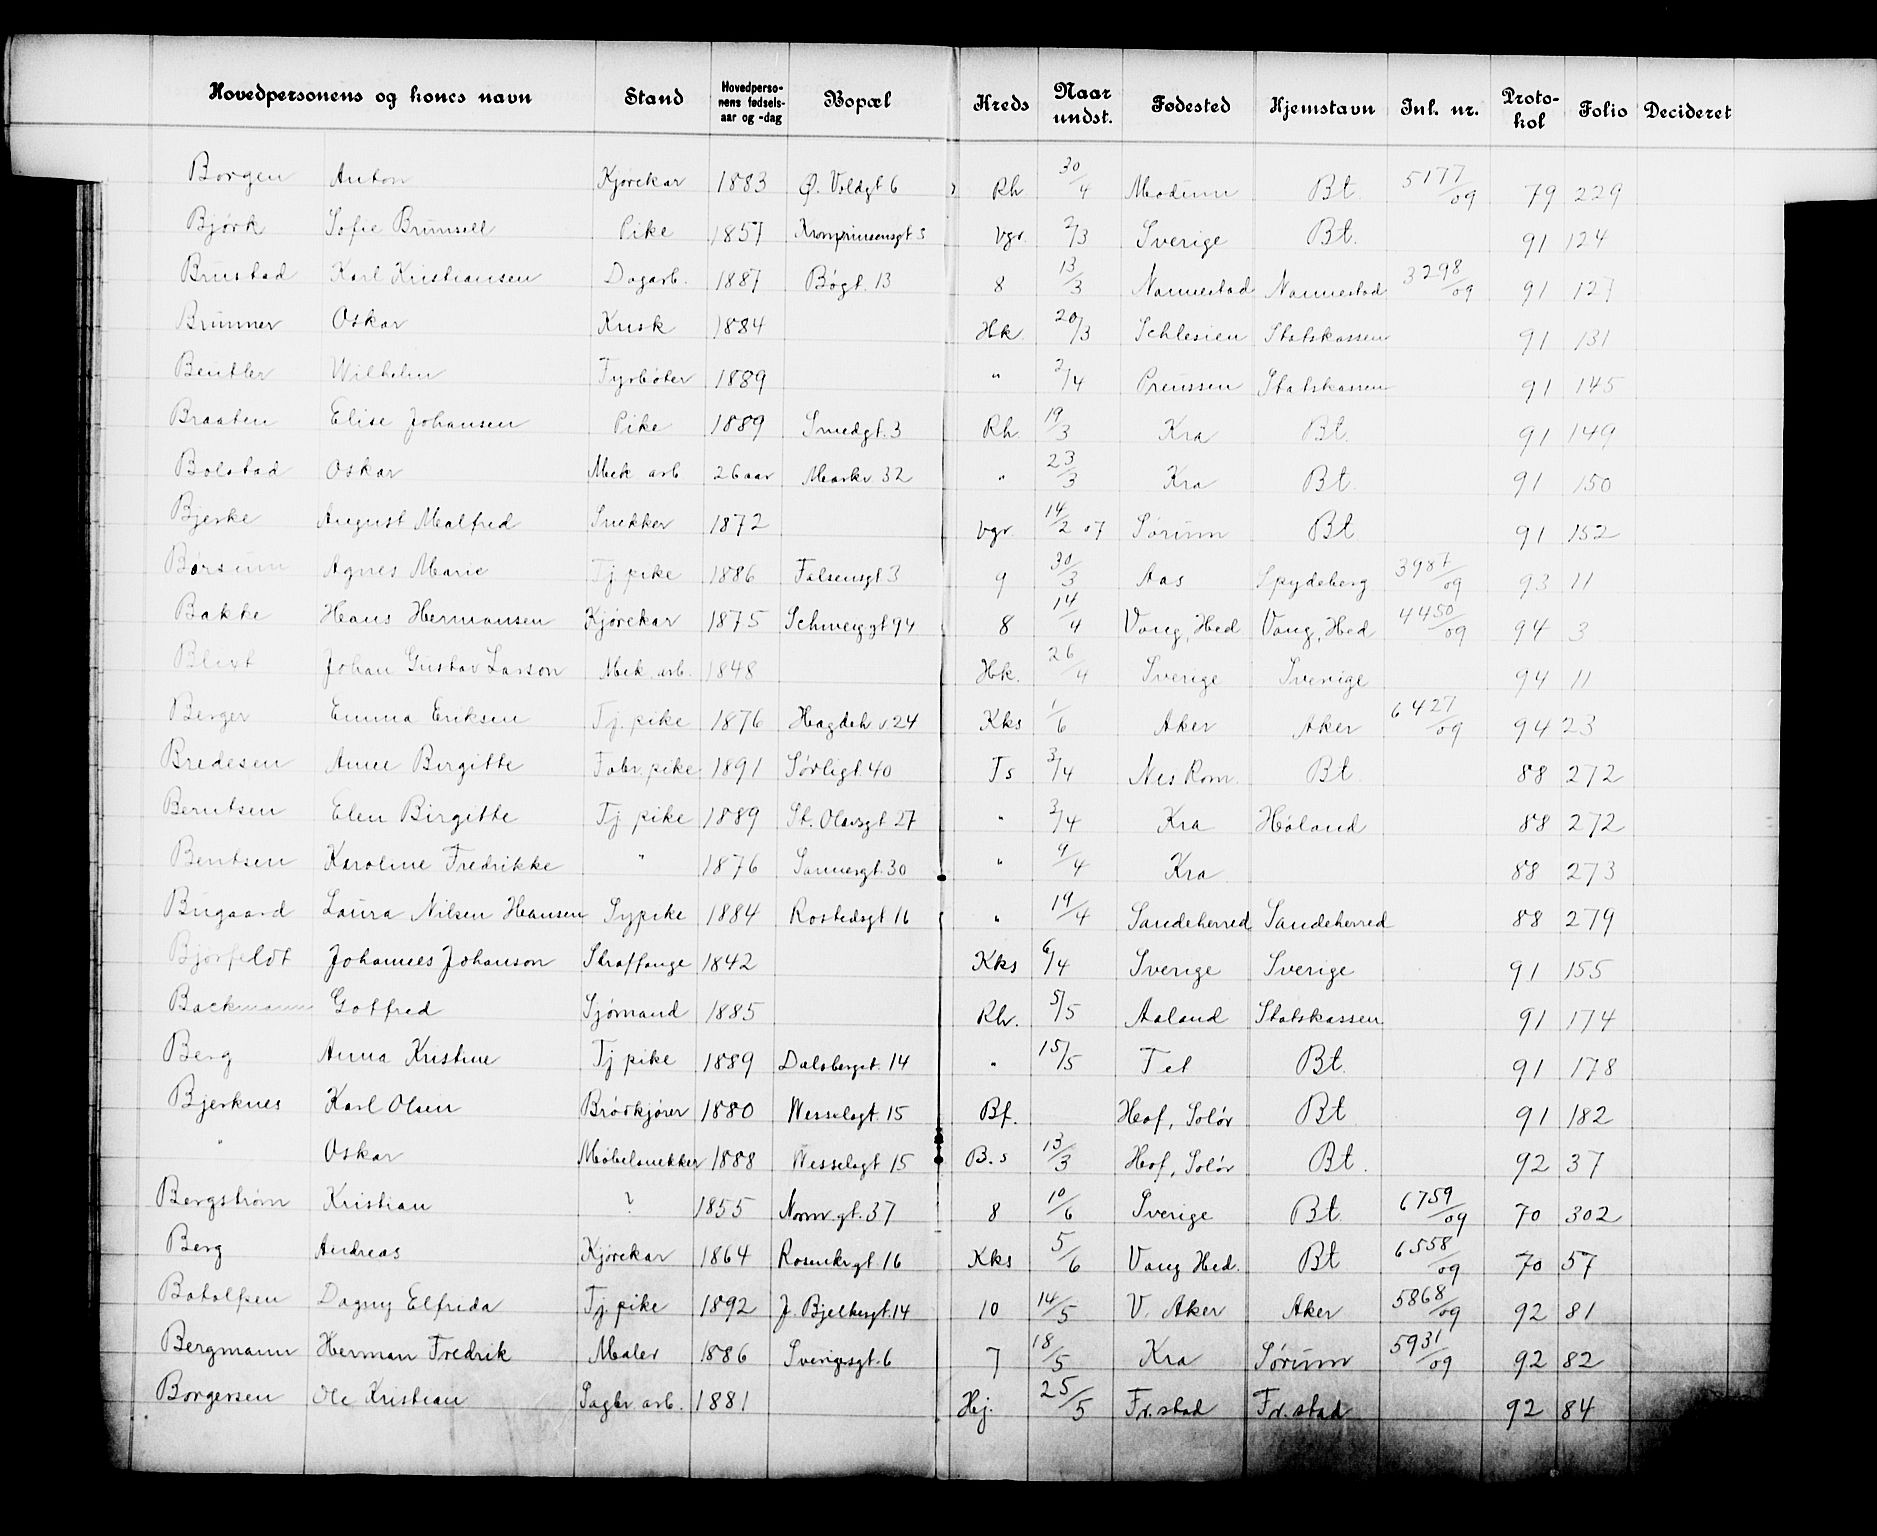 Hovedpersonens og kones navn Stand Hovedpersonens fødselsaar og -dag Bopæl Kreds Naar undst. Fødested Hjemstavn Inl. nr. Protokol Folio Decideret
Borgen Anton Kjørekar 1883 Ø. Voldgt 6 Rh 30/4 Modum Bt. 5177/09 79 229
Bjørk Sofie Brunsell Pike 1857 Kronprinsensgt 3 Vgr. 2/3 Sverige Bt. 91 124
Brustad Karl Kristiansen Dagarb. 1887 Bøgt. 13 8 13/3 Nannestad Nannestad 3298/09 91 127
Brunner Oskar Kusk 1884 Hk. 20/3 Schlesien Statskassen 91 131
Beutler Wilhelm Fyrbøter 1889 " 2/4 Preussen Statskassen 91 145
Braaten Elise Johansen Pike 1889 Smedgt. 3 Rh. 19/3 Kra Bt. 91 149
Bolstad Oskar Mek arb 26 aar Markv 32 " 23/3 Kra Bt. 91 150
Bjerke August Malfred Snekker 1872 Vgr. 14/2 07 Sørum Bt. 91 152
Børsum Agnes Marie Tj. pike 1886 Falsensgt 3 9 30/3 Aas Spydeberg 3987/09 93 11
Bakke Hans Hermansen Kjørekar 1875 Schweiggt 94 8 14/4 Vang, Hed Vang, Hed 4450/09 94 3
Blixt Johan Gustav Larson Mek. arb. 1848 Hk. 26/4 Sverige Sverige 94 11
Berger Emma Eriksen Tj. pike 1876 Hagdehv 24 Kks 1/6 Aker Aker 6427/09 94 23
Bredesen Anne Birgitte Fabr. pike 1891 Sørligt. 40 Ts 3/4 Nes Rom. Bt. 88 272
Berntsen Elen Birgitte Tj pike 1889 St. Olavsgt 27 " 3/4 Kra Høland 88 272
Bentsen Karoline Fredrikke " 1876 Sannergt. 30 " 4/4 Kra 88 273
Bugaard Laura Nilsen Hansen Sypike 1884 Rostedsgt 16 " 19/4 Sandeherred Sandeherred 88 279
Bjørfeldt Johannes Johanson Straffange 1842 Kks 6/4 Sverige Sverige 91 155
Backmann Gotfred Sjømand 1885 Rh. 5/5 Aaland Statskassen 91 174
Berg Anna Kristine Tj pike 1889 Dalsbergst. 14 " 15/5 Tet Bt. 91 178
Bjerknes Karl Olsen Brødkjører 1880 Wesselsgt. 15 Bf. Hof, Solør Bt 91 182
" Oskar Møbelsnekker 1888 Wesselsgt 15 B.s 13/3 Hof, Solør Bt. 92 37
Bergstrøm Kristian ? 1855 Norm gt. 37 8 10/6 Sverige Bt. 6759/09 70 302
Berg Andreas Kjørekar 1864 Rosenkrgt 16 Kks 5/6 Vang Hed. Bt 6558/09 70 57
Botolfsen Dagny Elfrida Tj. pike 1892 J. Bjelkesgt. 14 10 14/5 V. Aker Aker 5868/09 92 81
Bergmann Herman Fredrik Maler 1886 Sverigesgt. 6 7 18/5 Kra Sørum 5931/09 92 82
Borgersen Ole Kristian Sagbr arb. 1881 Hej. 25/5 Fr. stad Fr. stad 92 84